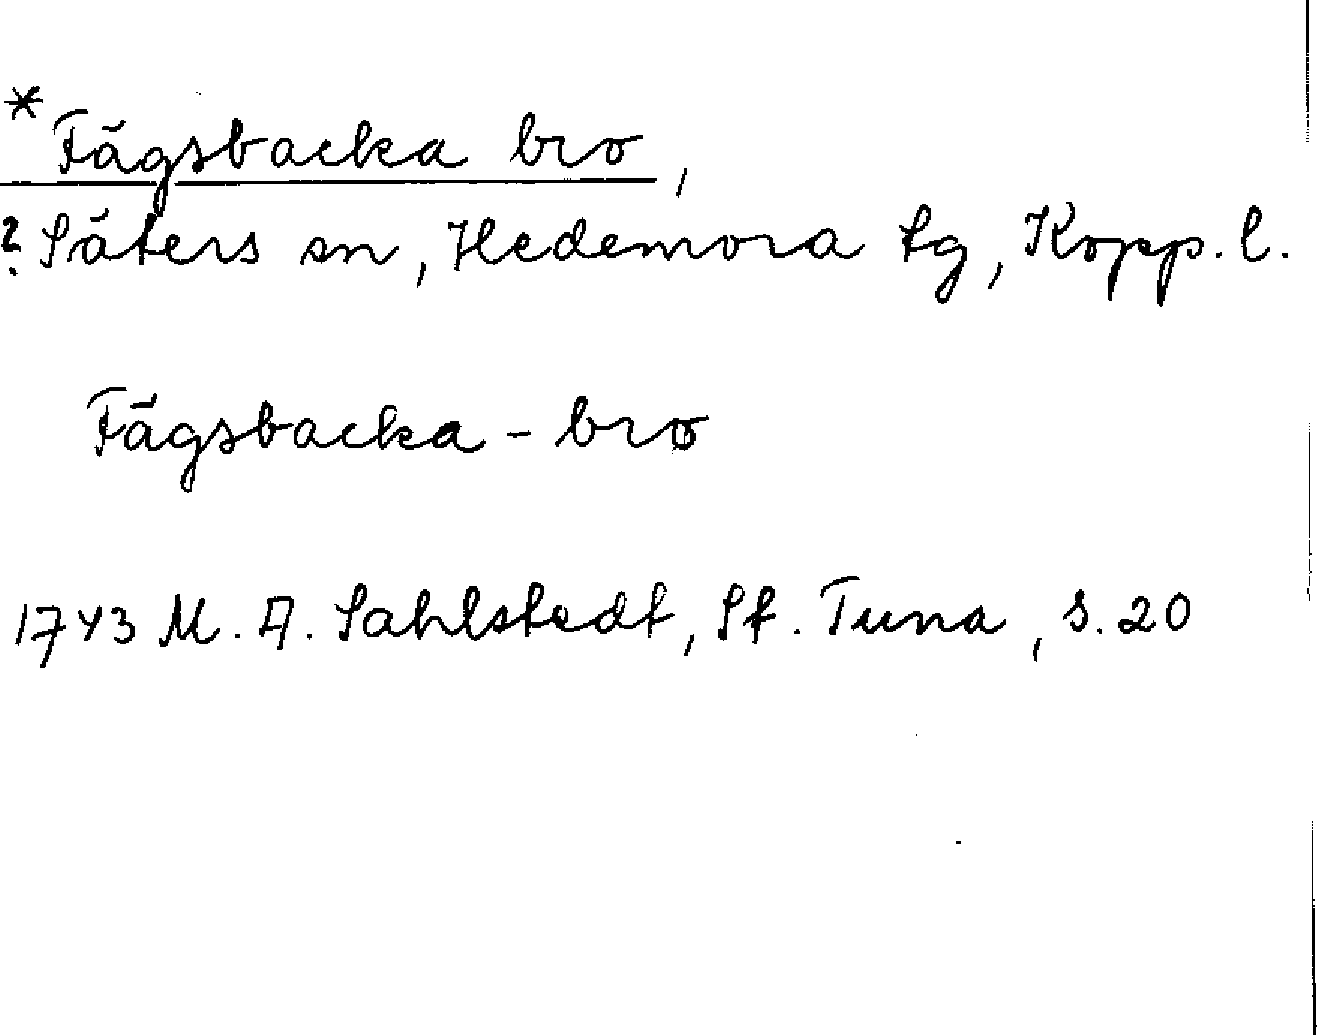 *Fägsbacka bro,
? Säters sn, Hedemora tg, Kopp. l.
Fägsbacka-bro
1743 M. A. Sahlstedt, St. Tuna, s. 20